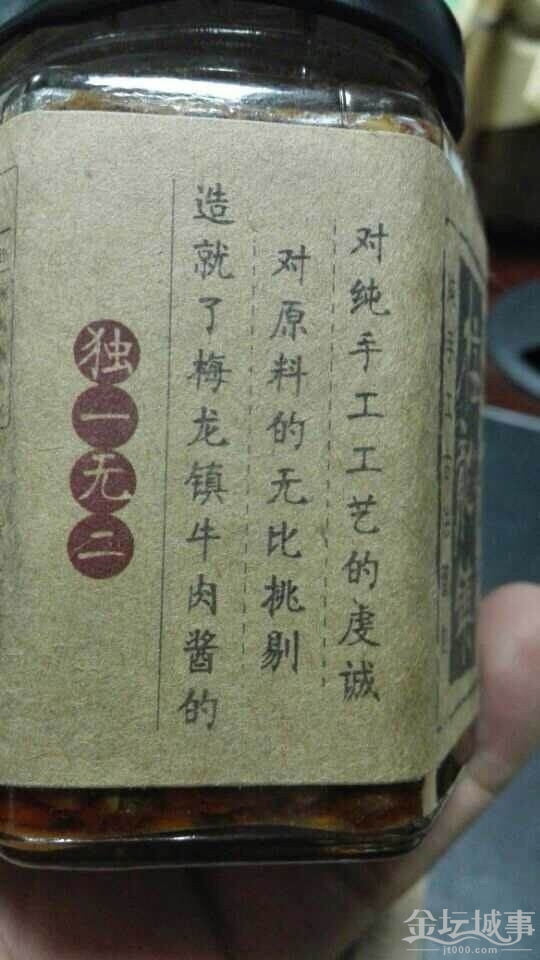 对纯手工工艺的虔诚
对原料的无比挑剔
造就了梅龙镇牛肉酱的
独一无二
金坛城事
jt000.com